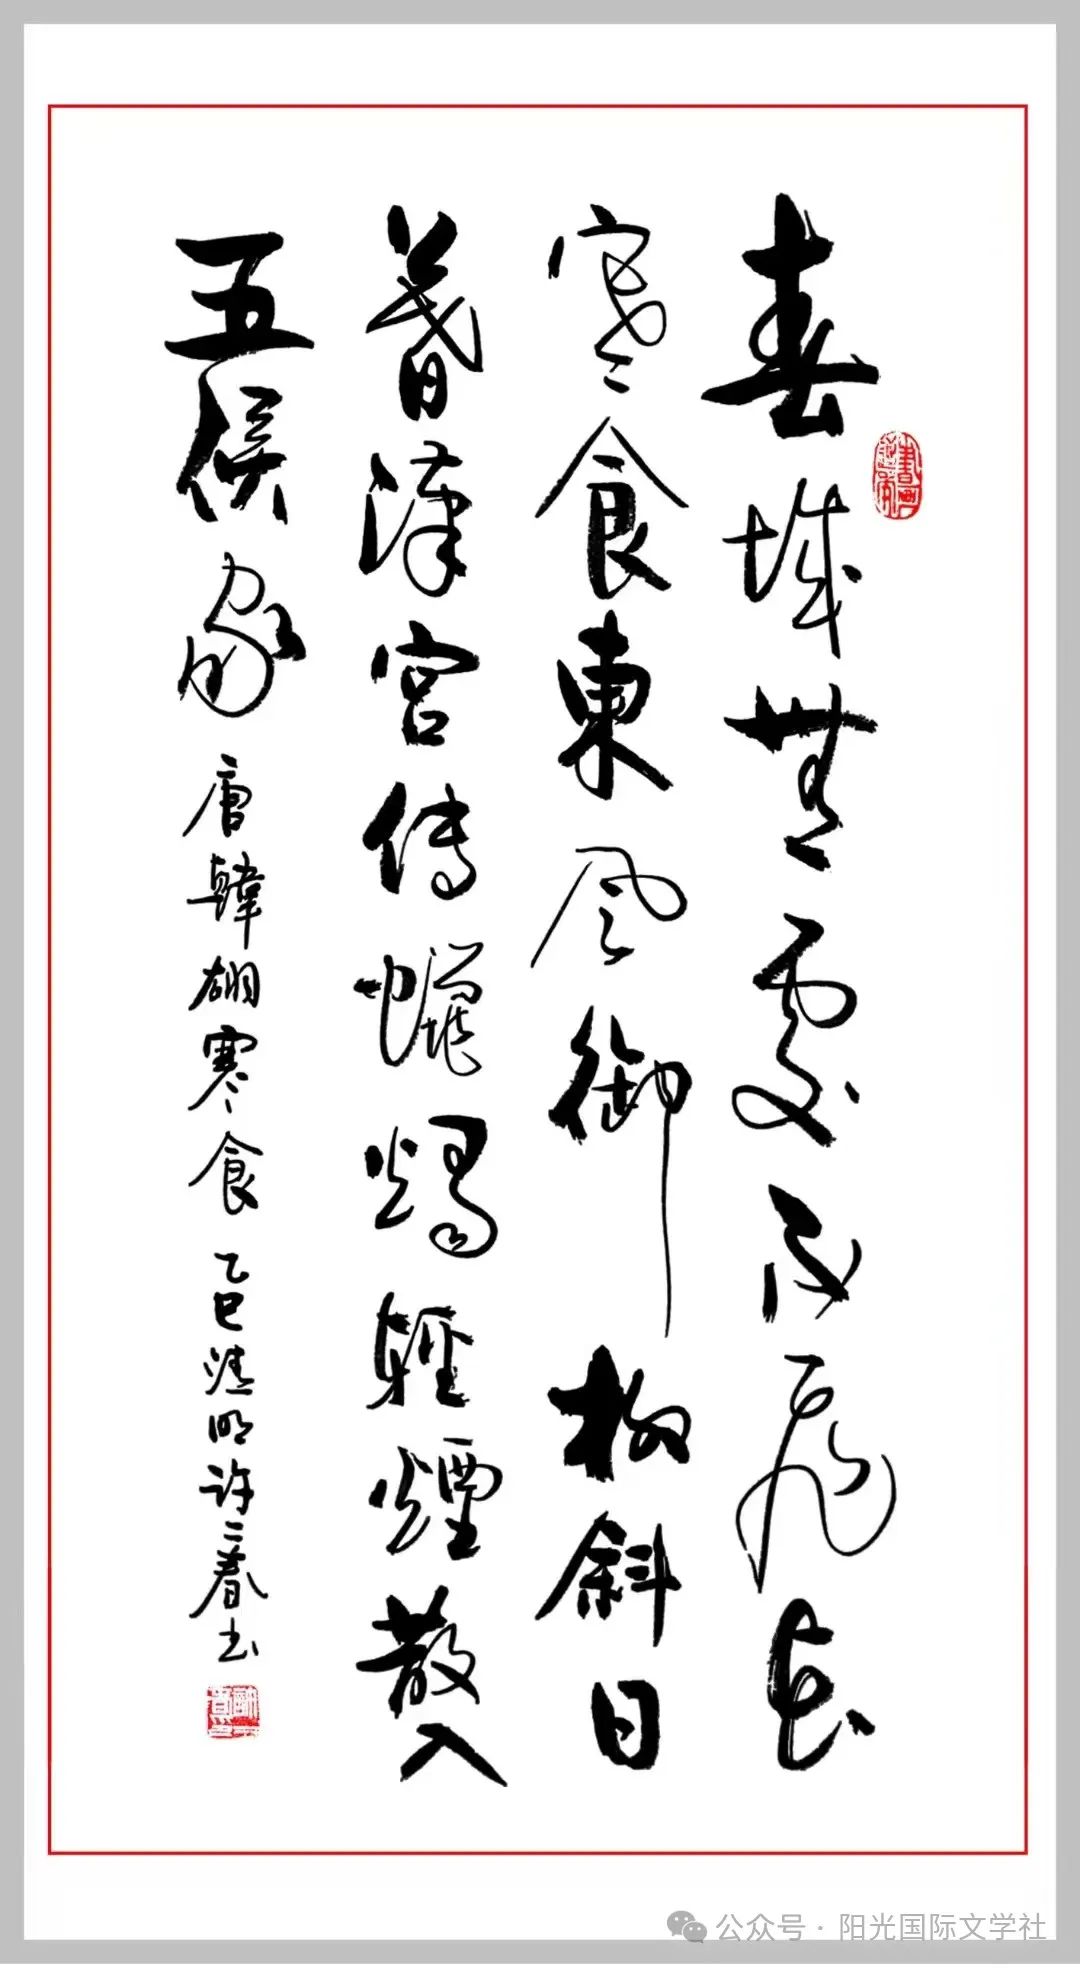 春城無處不飛花
寒食東風御柳斜日
暮漢宮传蠟燭輕煙散入
五侯家
唐韓翃寒食 乙巳清明許二春书
公众号 · 阳光国际文学社